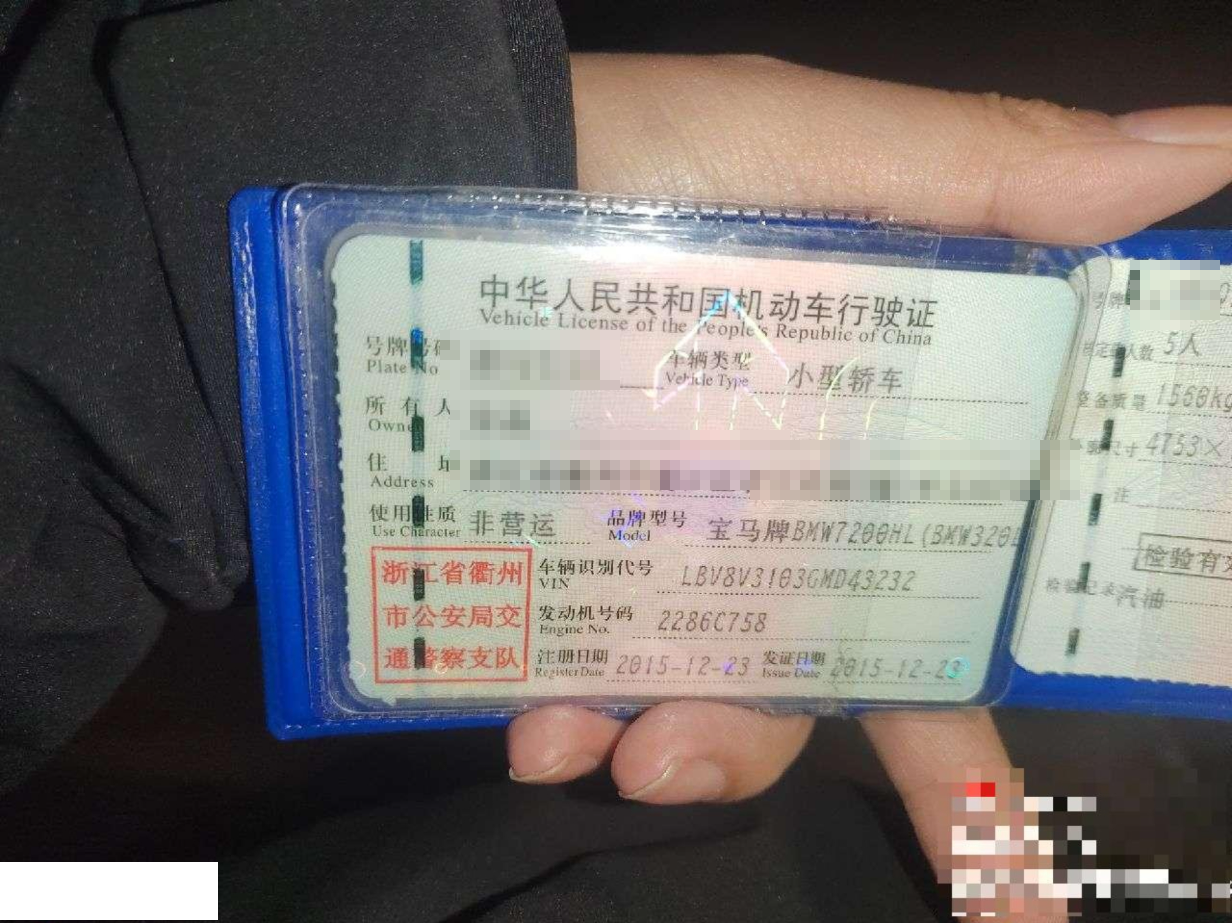 中华人民共和国机动车行驶证
Vehicle License of the People's Republic of China
号牌号码
Plate No
车辆类型
Vehicle Type
小型轿车
所有人
Owne
住址
Address
使用性质
Use Character
非营运
品牌型号
Model
宝马牌BMW7200HL(BMW320L
浙江省衢州
市公安局交
通警察支队
车辆识别代号
VIN
LBV8V3103GMD43232
发动机号码
Engine No.
2286C758
注册日期
Register Date
2015-12-23
发证日期
Issue Date
2015-12-23
号牌
人数 5人
整备质量 1560kg
尺寸 4753×
注
检验有效
检验记录
汽油